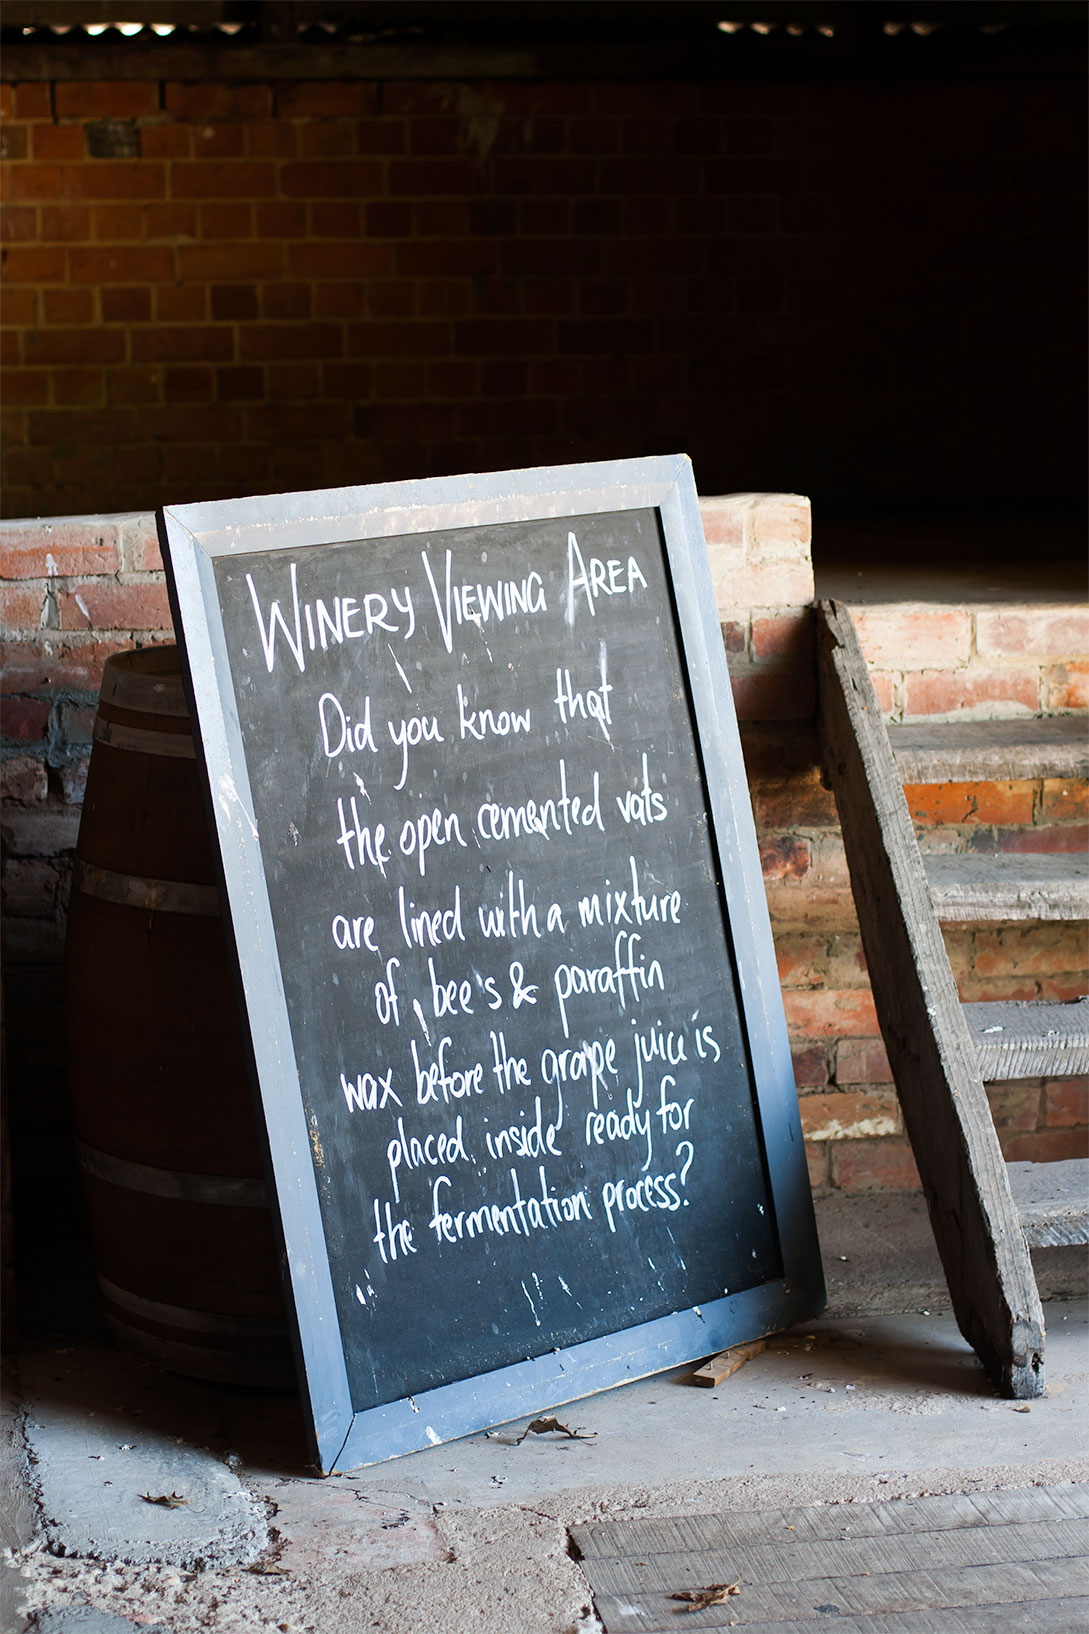 WINERY VIEWING AREA
Did you know that
the open cemented vats
are lined with a mixture
of bee's & paraffin
wax before the grape juice is
placed inside ready for
the fermentation process?